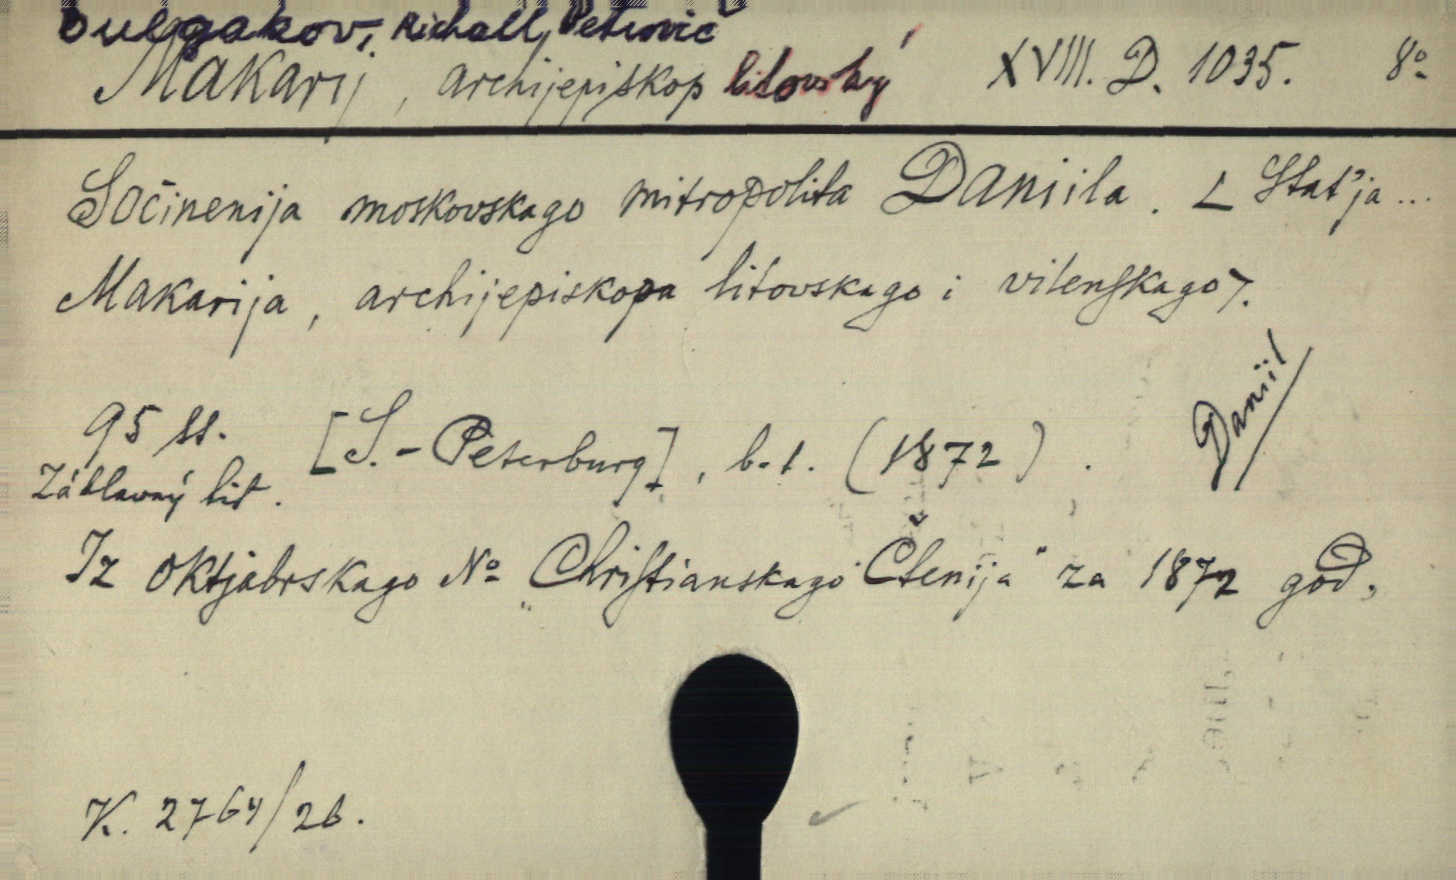 Bulgakov, Michail Petrovič
Makarij, archijepiskop litovský XVIII. D. 1035. 8º
Sočinenija moskovskago mitropolita Daniila. [Stat'ja...
Makarija, archijepiskopa litovskago i vilenskago].
95 ss. [S.-Peterburg], b. t. (1872).
Záhlavný list.
Daniil
Iz oktjabrskago Nº „Christianskago Čtenija" za 1872 god,
K. 2764/26.